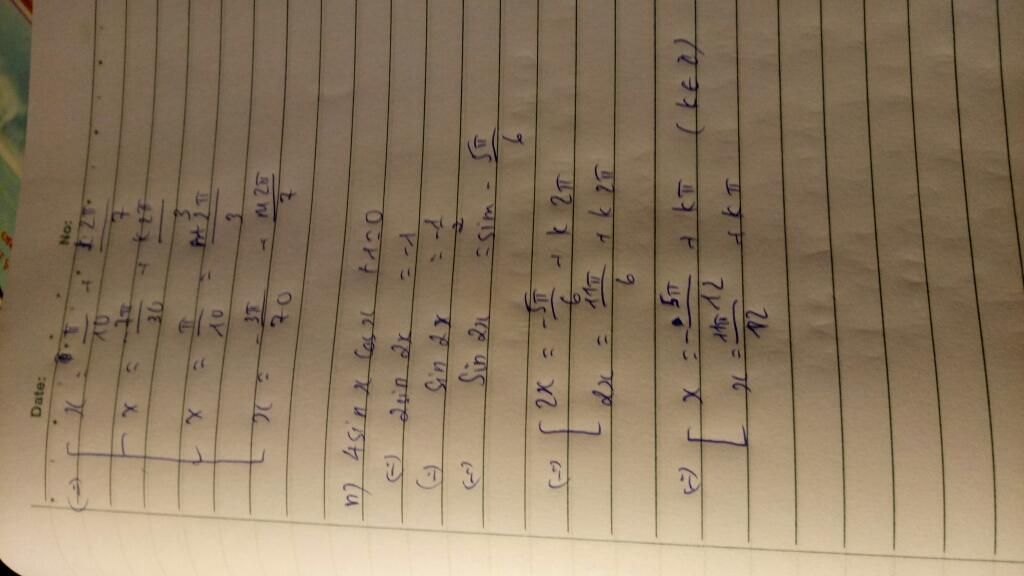 Date: No:
x = π/10 + k2π/7
x = 3π/30 + k2π/3
x = π/10 = k2π/3
x = -3π/70 + k2π/7
n) 4sin x cos x + 1 = 0
(=) 2sin 2x = -1
(=) Sin 2x = -1/2
(=) Sin 2x = sin -5π/6
(=) [ 2x = -5π/6 + k2π
2x = 11π/6 + k2π
(=) [ x = -5π/12 + kπ (k∈Z)
x = 11π/12 + kπ